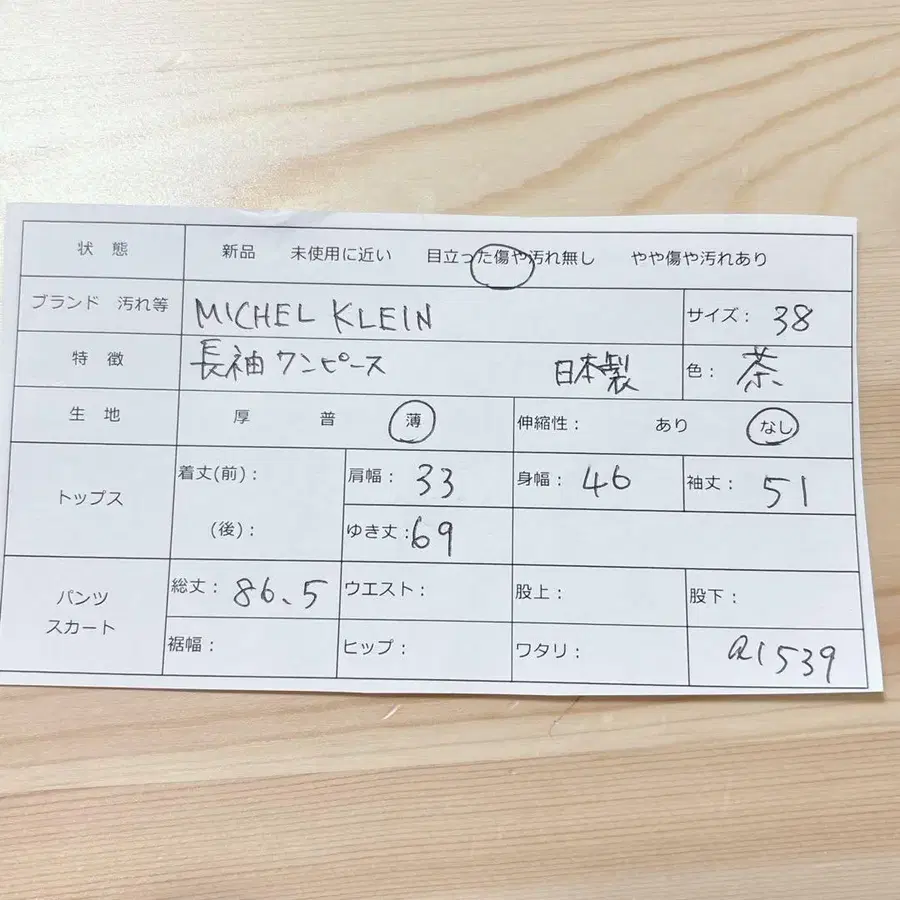 状 態 新品 未使用に近い 目立った傷や汚れ無し やや傷や汚れあり
ブランド 汚れ等 MICHEL KLEIN サイズ： 38
特 徴 長袖ワンピース 日本製 色： 茶
生 地 厚 普 薄 伸縮性： あり なし
トップス 着丈(前)： 肩幅： 33 身幅： 46 袖丈： 51
(後)： ゆき丈：69
パンツ スカート 総丈： 86.5 ウエスト： 股上： 股下：
裾幅： ヒップ： ワタリ： a1539